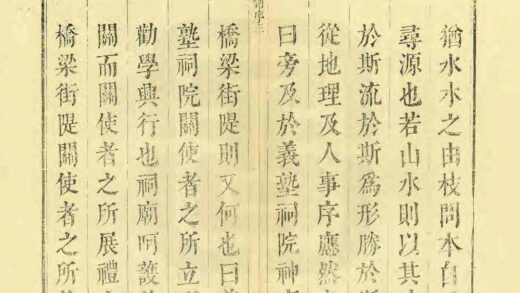 猶水木之由枝問本自
尋源也若山水則以其
於斯流於斯爲形勝於
從地理及人事序應然
曰旁及於義塾祠院神
序三
橋梁街隄則又何也曰
塾祠院關使者之所立
勸學興行也祠廟呵護
關而關使者之所展禮
橋梁街隄關使者之所